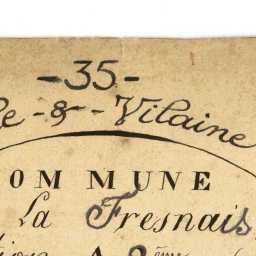 -35-
le-&-Vilaine
OMMUNE
La Fresnais
tion A 2ème